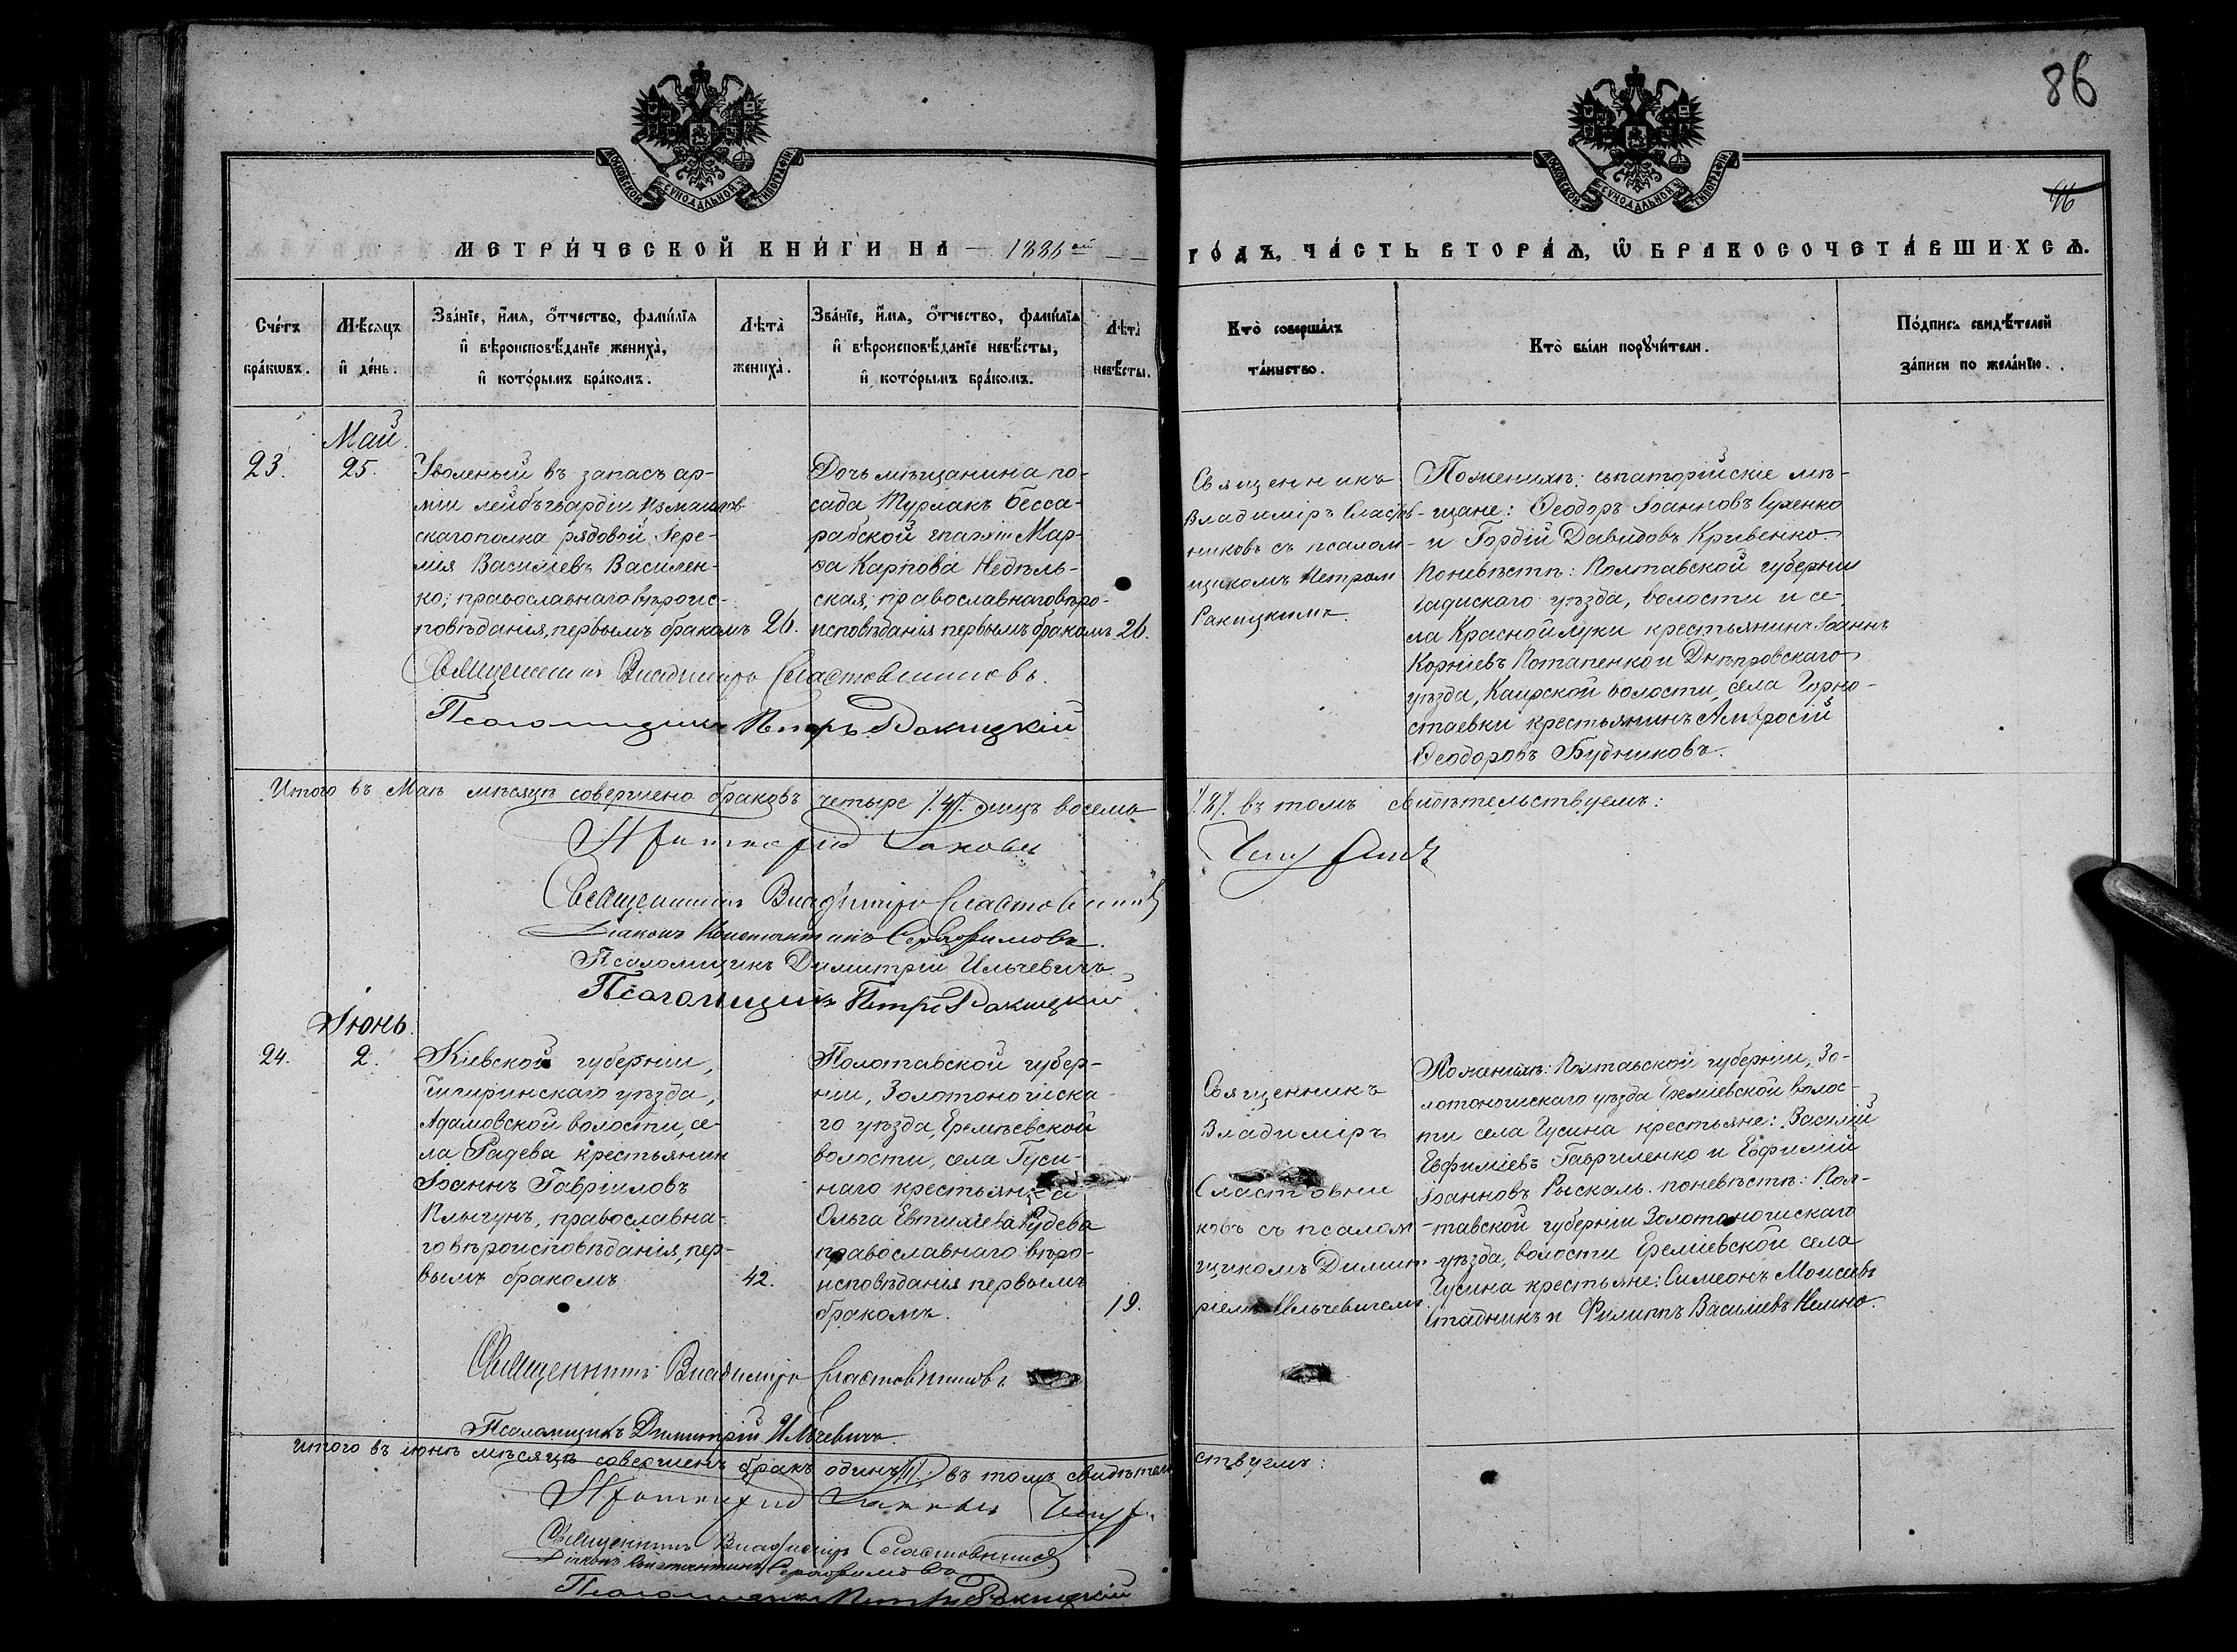 86
МОСКОВСКОЙ СУНОДАЛЬНОЙ ТИПОГРАФІИ
МОСКОВСКОЙ СУНОДАЛЬНОЙ ТИПОГРАФІИ
46
МЕТРИ́ЧЕСКОЙ КНИ́ГИ НА 1886 ой
ГО́ДЪ, ЧА́СТЬ ВТОРА́Ѧ, Ѽ БРАКОСОЧЕТА́ВШИХСѦ.
Сче́тъ
бра́кѡвъ.
Мѣ́сѧцъ
и҆ де́нь.
Зва́нїе, и҆́мѧ, ѻ҆́тчество, фами́лїѧ
и҆ вѣроисповѣ́данїе жениха̀,
и҆ кото́рымъ бра́комъ.
Лѣта̀
жениха̀.
Зва́нїе, и҆́мѧ, ѻ҆́тчество, фами́лїѧ
и҆ вѣроисповѣ́данїе невѣ́сты,
и҆ кото́рымъ бра́комъ.
Лѣта̀
невѣ́сты.
Кто̀ соверша́лъ
та́инство.
Кто̀ бы́ли порꙋчи́тели.
По́дпись свидѣ́телей
за́писи по жела́нїю.
23.
Май
25.
Уволеный въ запасъ ар-
міи лейбъгвардіи Измаилов-
скаго полка рядовой Іере-
мія Василіевъ Василен-
ко; православнаго вѣроис-
повѣданія, первымъ бракомъ
26.
Дочь мѣщанина по-
сада Турлакъ бесса-
рабской Мар-
ѳа Карпова Недѣль-
ская; православнаго вѣро-
исповѣданія первымъ бракомъ
26.
Священникъ
Владиміръ Сластов-
никовъ съ псалом-
щикомъ Петром
Ракицкимъ.
По женихѣ: евпаторійскіе мѣ-
щане: Ѳеодоръ Іоанновъ Сухенко
и Гордій Давидовъ Кривенко
По невѣстѣ: Полтавской губерніи
Гадискаго уѣзда, волости и се-
ла Красной луки крестьянинъ Іоаннъ
Корніевъ Потапенко и Днѣпровскаго
уѣзда, Каирской волости, села Горно-
стаевки крестьянинъ Амвросій
Ѳеодоровъ Будниковъ.
Священникъ Владиміръ Сластовниковъ.
Псаломщикъ Петръ Ракицкій
Итого въ Маѣ мѣсяцѣ совершено браковъ четыре /4/. лицъ восемь
/8/. въ томъ свидѣтельствуемъ:
Протоіерей Іаковъ
Священникъ Владиміръ Сластовников
Діаконъ Константинъ Серафимовъ.
Псаломщикъ Димитрій Ильчевичъ.
Псаломщикъ Петръ Ракицкій
24.
Іюнь.
2.
Кіевской губерніи,
Чигиринскаго уѣзда,
Адамовской волости, се-
ла Радева крестьянин
Іоаннъ Гавріиловъ
Плыгунъ, православна-
го вѣроисповѣданія, пер-
вымъ бракомъ
42.
Полотавской губер-
ніи, Золотоношска-
го уѣзда, Еремѣевской
волости, села Гуси-
наго крестьянка
Ольга Евтихіева Рудева
православнаго вѣро-
исповѣданія первымъ
бракомъ.
19.
Священникъ
Владиміръ
Сластовни
ковъ съ псалом
щикомъ Димит-
ріемъ Ильчевичемъ.
По женихѣ: Полтавской губерніи, Зо-
лотоношскаго уѣзда Ереміевской волос-
ти села Гусина крестьяне: Василій
Евфиміевъ Гавриленко и Евфимій
Іоанновъ Рыскаль. по невѣстѣ: Пол-
тавской губерніи Золотоношскаго
уѣзда, волости Ереміевской села
Гусина крестьяне: Симеонъ Моисеевъ
Стадникъ и Филиппъ Василіевъ
Священникъ Владиміръ Сластовниковъ
Псаломщикъ Димитрій Ильчевичъ.
Итого въ іюнѣ мѣсяцѣ совершенъ бракъ одинъ /1/. въ томъ свидѣтель
ствуемъ:
Протоіерей Іаковъ
Священникъ Владиміръ Сластовников
Діаконъ Константинъ Серафимовъ
Псаломщикъ Петръ Ракицкій